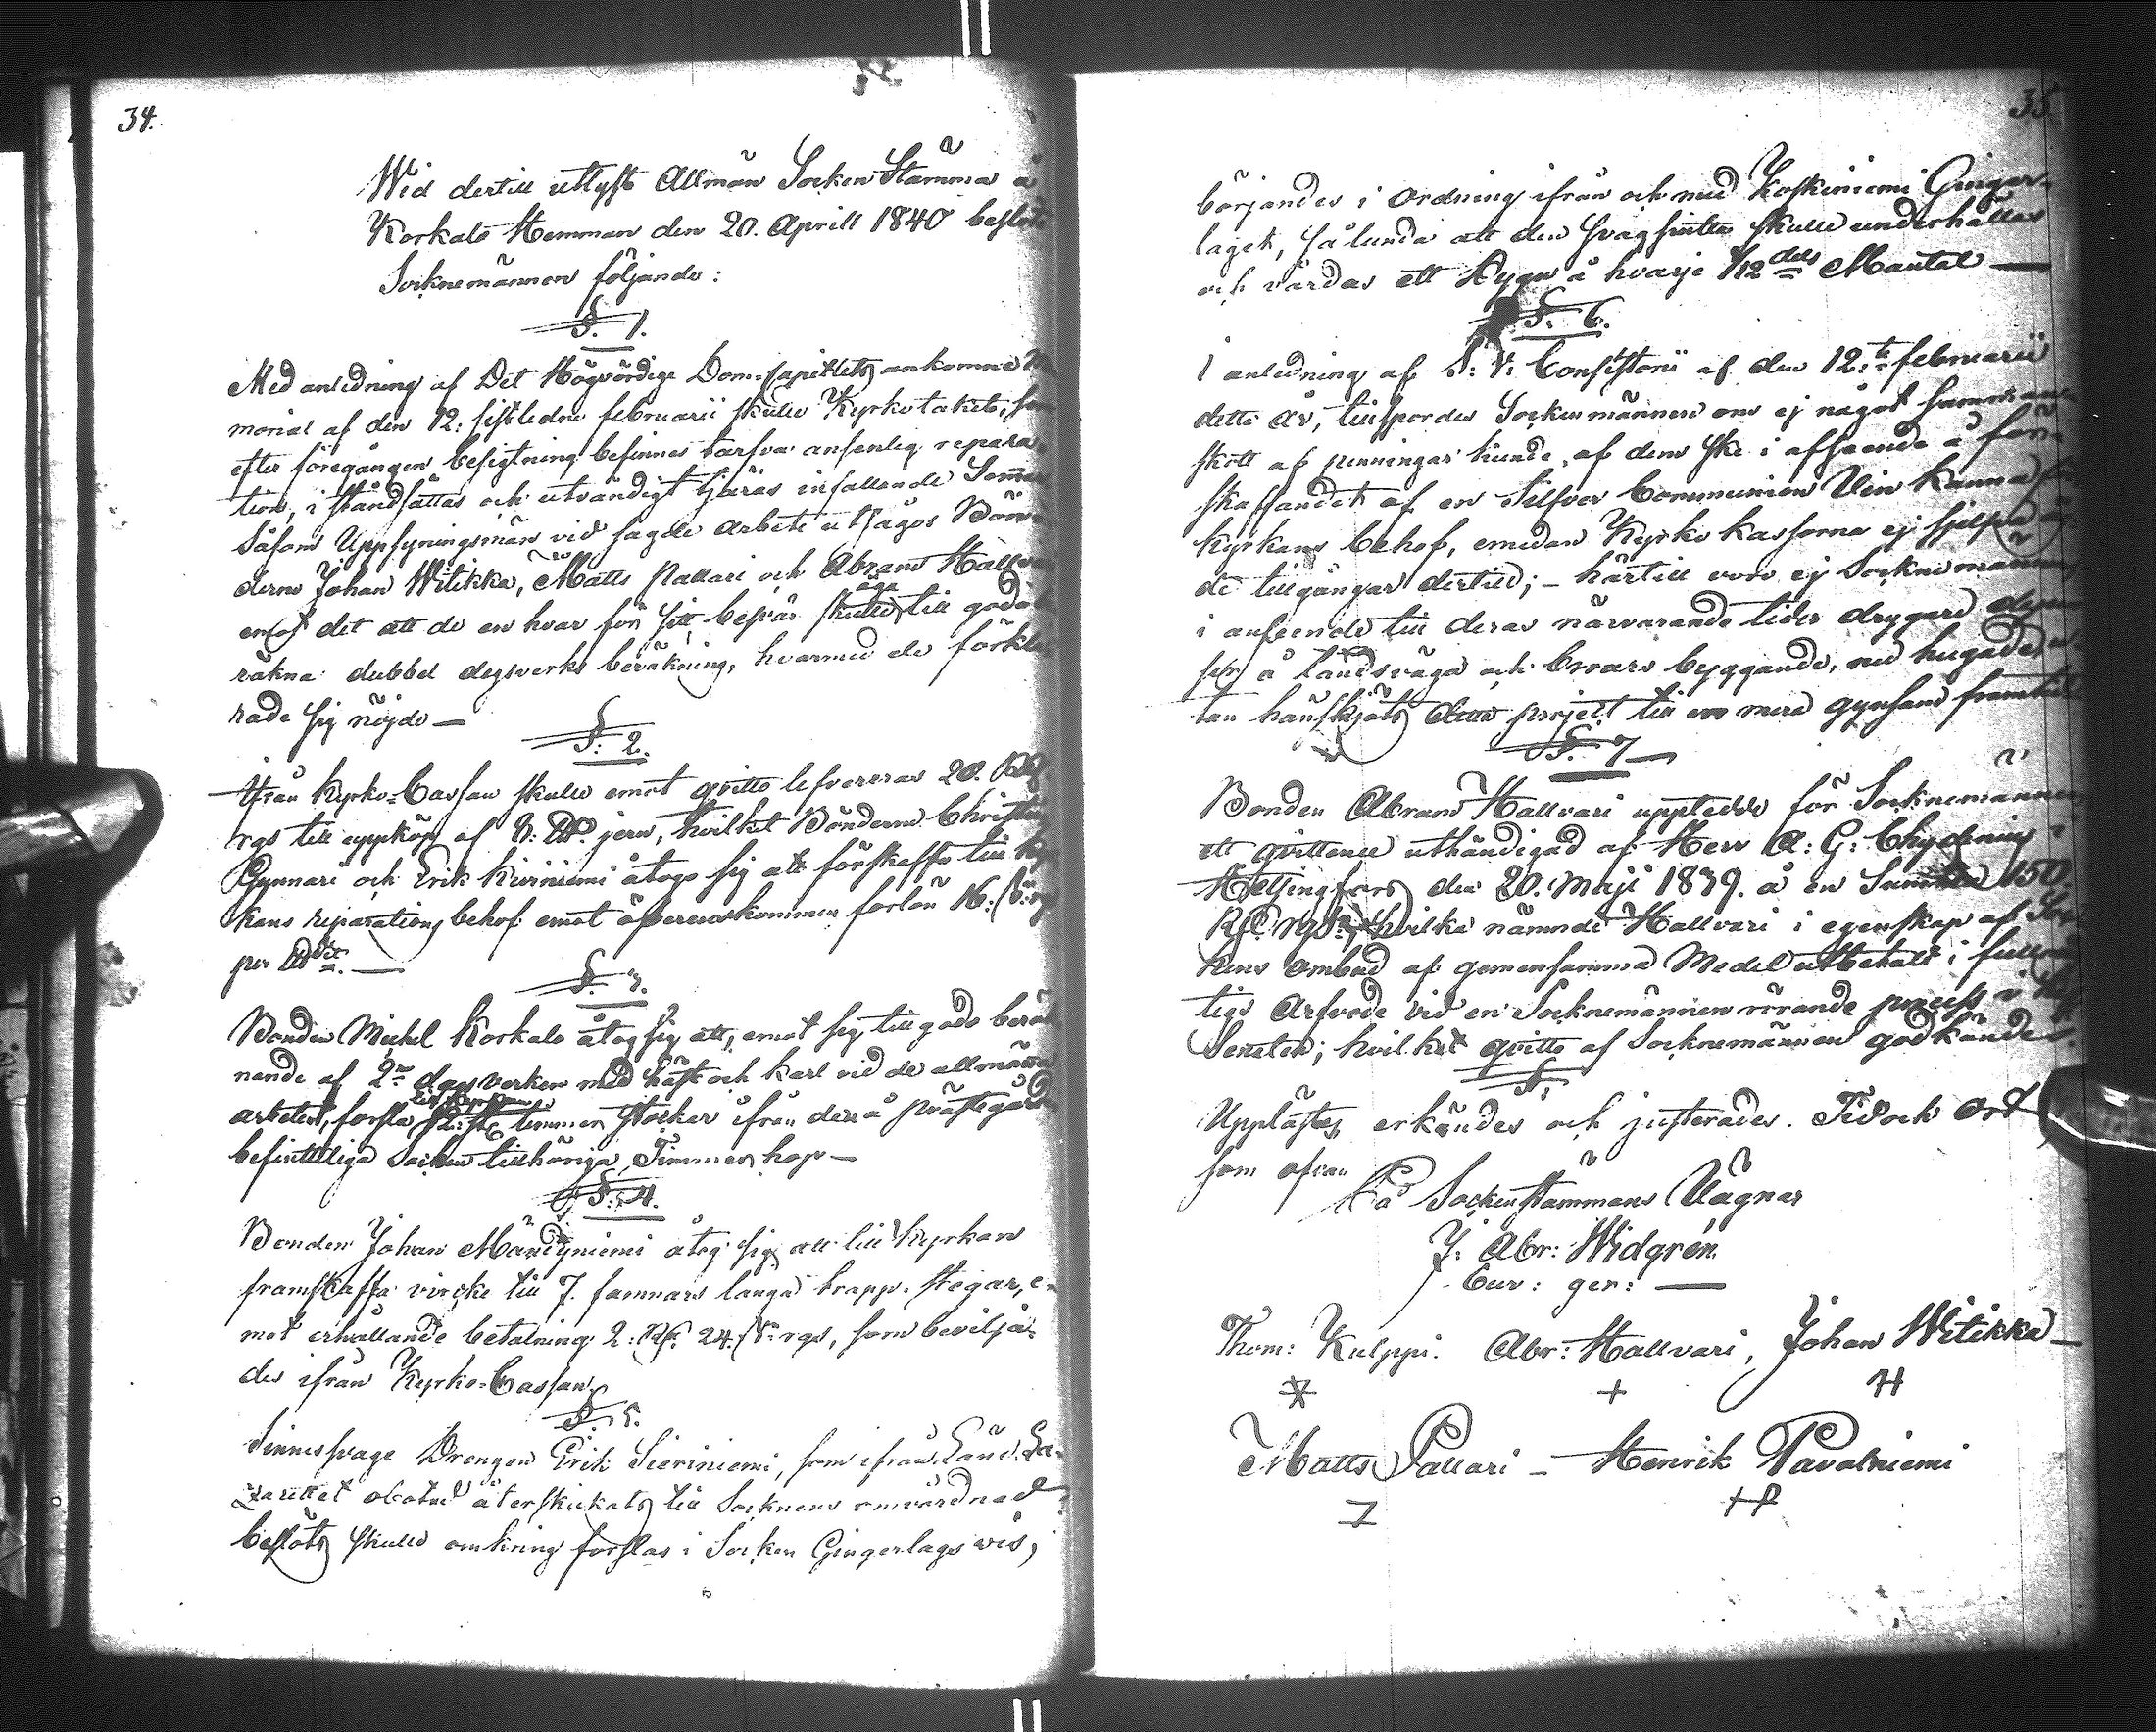 34.
Wid dertill utlyst Allmän Socken Stämma å
Korkalo Hemman den 20. Aprill 1840 beslöts
Socknemännen följande:
§. 1.
Med anledning af Det Högvördige Dom-Capitlets ankomne Me
morial af den 12: sistledne februarii skulle Kyrkotaket, som
efter föregången besigtning befinnes tarfva ansenlig repara-
tion, i ståndsättas och utvändigt tjäras infallande Sommar
Såsom Uppsyningsmän vid sagde arbete utsågos Bön-
derne Johan Witikka, Matts Pallari och Abram Hallvari
emot det att de en hvar för sitt besvär skulle äga till godo
räkna dubbel dagsverks beräkning, hvarmed de förkla
rade sig nöjde —
§. 2.
Ifrån Kyrko-Cassan skulle emot qvitto lefvereras 20. Rbl
rgs till uppköp af 8: LU jern, hvilket Bönderne Christian
Gynnari och Erik Kiviniemi åtogo sig att förskaffa till Kyr
kans reparations behof emot öfverenskommen forlön 16: S: rgs
per LU —
§. 3.
Bonden Michel Korkalo åtog sig att, emot sig till godo beräk
nande af 2ne dagsverken med häst och karl vid de allmänna
arbeten, forsla till kyrkan timmer stockar ifrån den å prästegården
befintteliga Socken tillhöriga Timmer hop —
§. 4.
Bonden Johan Mändyniemi åtog sig att till Kyrkan
framskaffa virke till 7. famnars långa trapp-stegar, e-
mot erhållande betalning 2: Rf. 24. S: rgs, som beviljä-
des ifrån Kyrko-Cassan.
§. 5.
Sinnessvage Drengen Erik Sieriniemi, som ifrån Länd. La-
zarettet obotad återskickats till Socknens omvårdnad
beslöts skulle omkring forslas i Socken Gingerlags vis,
35
börjandes i ordning ifrån och med Koskiniemi Ginger-
laget, sålunda att den svagsinta skulle underhållas
och vårdas ett dygn å hvarje 1/12 dels Mantal —
§. 6.
I anledning af S: V: Consistorii af den 12:te februarii
detta år, tillspordes Sockenmännen om ej något samman-
skott af penningar kunde af dem ske i afseende å för-
skaffandet af en Silfver Communion Vin Kanna för
Kyrkans behof, emedan Kyrko kassorna ej sjelfva äg
de tillgångar dertill; – härtill voro ej Socknemännen
i anseende till deras närvarande tider drygare depen
ser å landsväga och broars byggande, nu hugade, u-
tan hänskjöts detta project till en mera gynsam framtid
§. 7
Bonden Abram Hallvari upptedde för Socknemännen
ett qvittence uthändigad af Herr A: G: Chydenius i
Helsingfors den 20. Maji 1839. å en Summa 150
Rbl rgs, hvilka nämnde Hallvari i egenskap af Sock
nens ombud af gemensamma Medel utbetalt i fullmäk
tigs Arfvode vid en Socknemännen rörande process i Kejs
Senaten; hvilket qvitto af Socknemännen godkändes.
§.
Upplästes, erkändes och justerades. Tid och Ort
som ofvan
På Sockenstämmans Vägnar
J: Abr: Widgrén
Cur: ger: —
Thom: Kulppi. Abr: Hallvari, Johan Witikka —
Matts Pallari — Henrik Pavalniemi